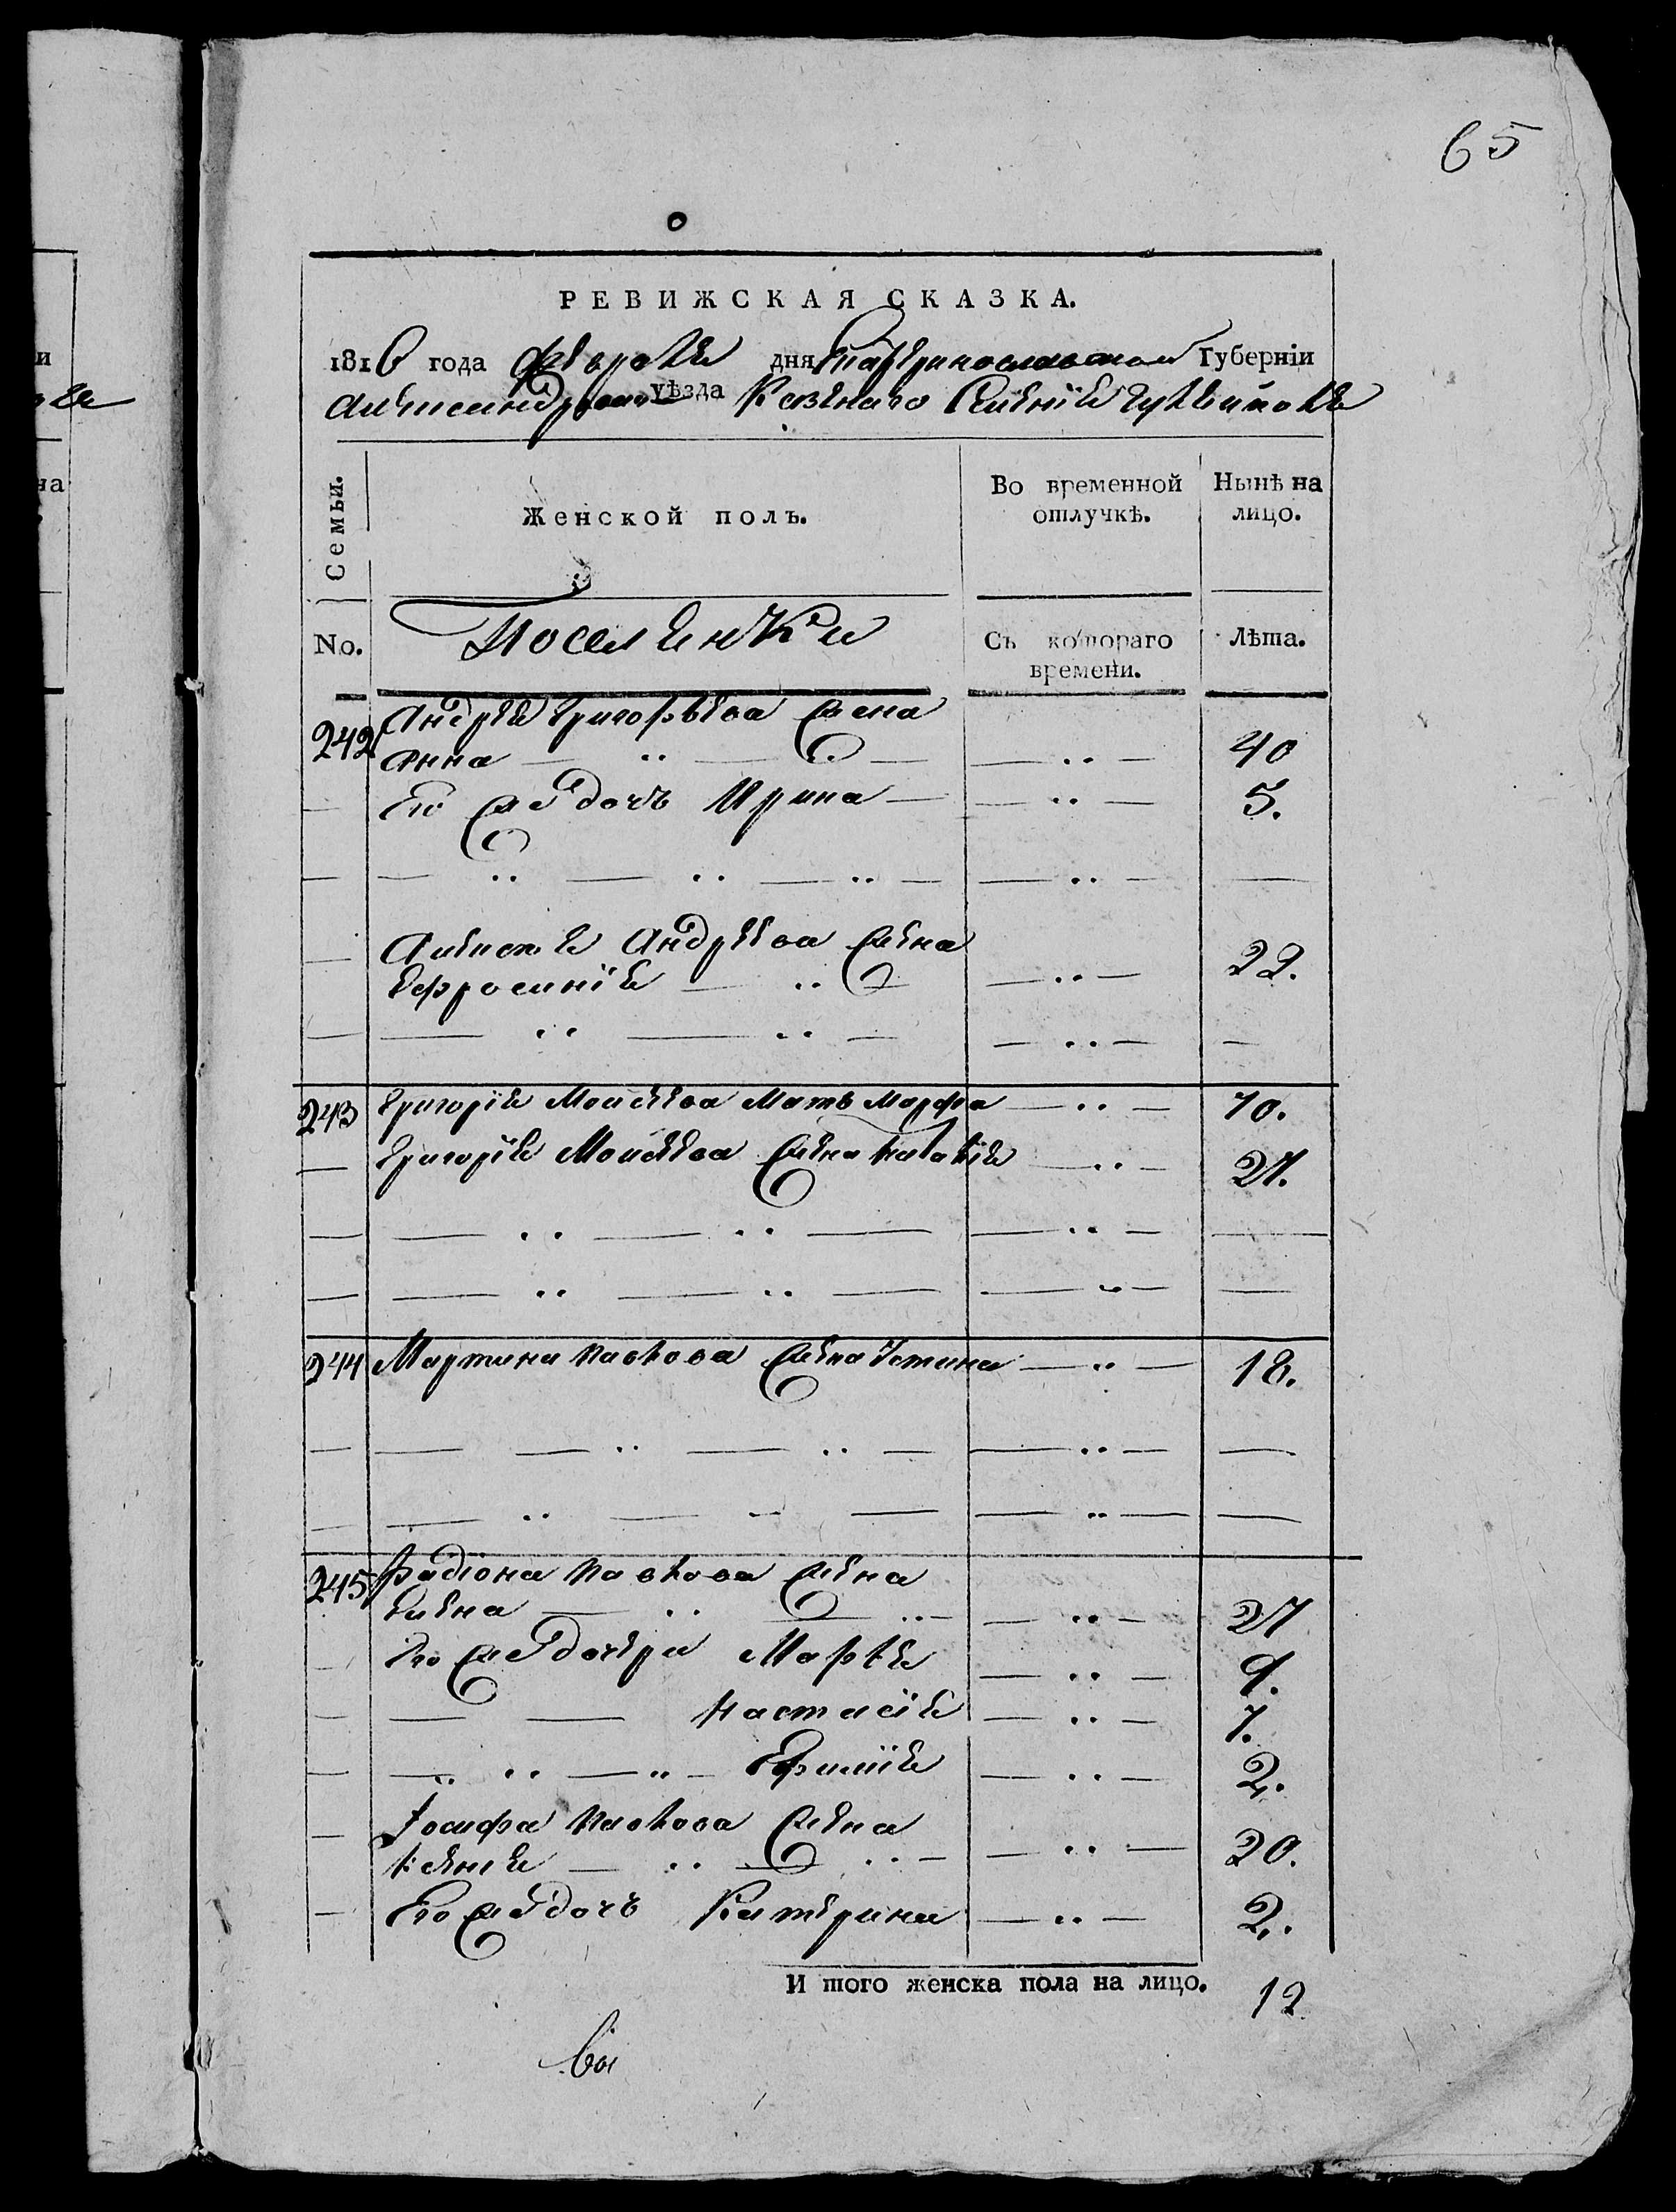 65
РЕВИЖСКАЯ СКАЗКА.
1816 года февраля дня Екатеринославской Губерніи
Александрійскаго уѣзда Казеннаго Селенія
Семьи.
Женской полъ.
Во временной отлучкѣ.
Нынѣ на лицо.
No.
Поселенки
Съ котораго времени.
Лѣта.
242 Андрея Григорьева жена
Анна — „ — — „ — 40
— Его жъ дочь Ирина — — „ — 5.
— — „ — „ — „ — — „ — —
— Алексея Андреева жена
Ефросинія — „ — — „ — 22.
— — „ — „ — — „ — —
243 Григорія Моисеева мать Марфа — „ — 70.
— Григорія Моисеева жена Наталія — „ — 27.
— — „ — „ — — „ — —
— — „ — „ — — „ — —
244 Мартина Павлова жена Устина — „ — 18.
— — — „ — „ — — „ — —
— — „ — „ — — „ — —
245 Радіона Павлова жена
Елена — „ — „ — — „ — 27
— Его жъ дочери Марья — „ — 9.
— — — Настасія — „ — 7.
— — „ „ — „ — Ефимія — „ — 2.
— Іосифа Павлова жена
Ксенія — „ — „ — — „ — 20.
— Его жъ дочь Катерина — „ — 2.
И того женска пола на лицо. 12